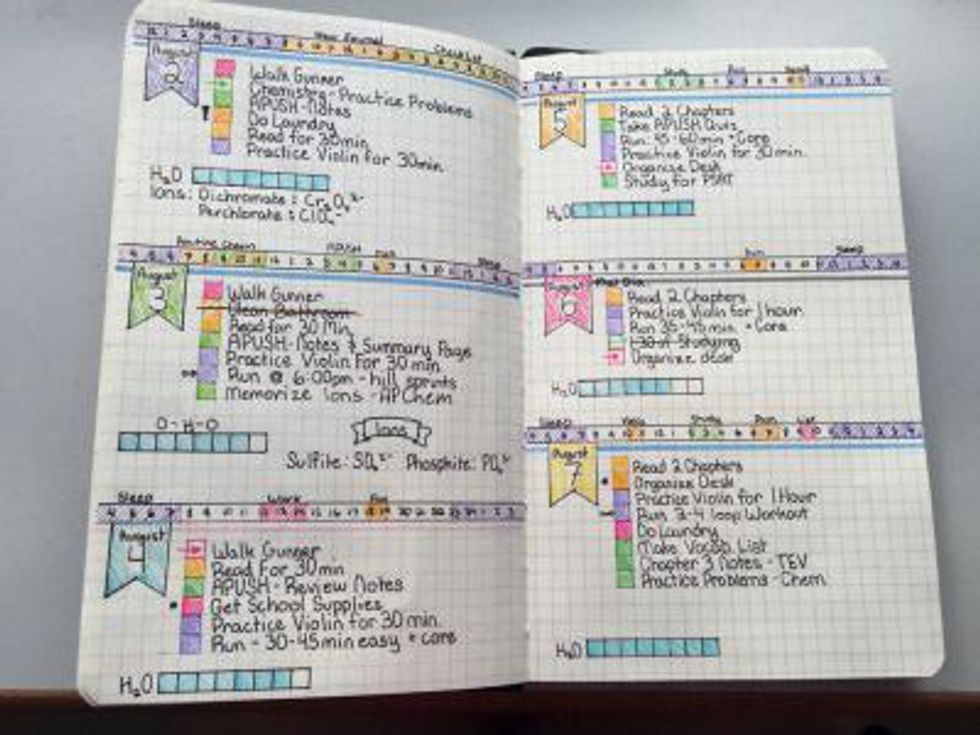 Sleep
August
2
Walk Gunner
Chemistry - Practice Problems
APUSH - Notes
Do Laundry
Read for 30min
Practice Violin for 30min.
H₂O
Ions: Dichromate: Cr₂O₇²⁻
Perchlorate: ClO₄⁻
APUSH
Sleep
August
3
Walk Gunner
Clean Bathroom
Read for 30 Min
APUSH - Notes & Summary Page
Practice Violin for 30 min
Run @ 6:00pm - hill sprints
Memorize Ions - AP Chem
O-H-O
Ions
Sulfite: SO₃²⁻ Phosphite: PO₃³⁻
Sleep Work Run
August
4
Walk Gunner
Read for 30min
APUSH - Review Notes
Get School Supplies
Practice Violin for 30 min.
Run - 30-45min easy + core
H₂O
Sleep Study Run
August
5
Read 2 Chapters
Take APUSH Quiz
Run: 45-60min + Core
Practice Violin for 30 min.
Organize Desk
Study for PSAT
H₂O
Run Sleep
August
6
Read 2 Chapters
Practice Violin for 1 hour
Run 35-45min. + Core
1:30 of Studying
Organize desk
H₂O
Sleep Study Run
August
7
Read 2 Chapters
Organize Desk
Practice Violin for 1 Hour
Run 3-4 loop Workout
Do Laundry
Make Vocab List
Chapter 3 Notes - TEV
Practice Problems - Chem
H₂O